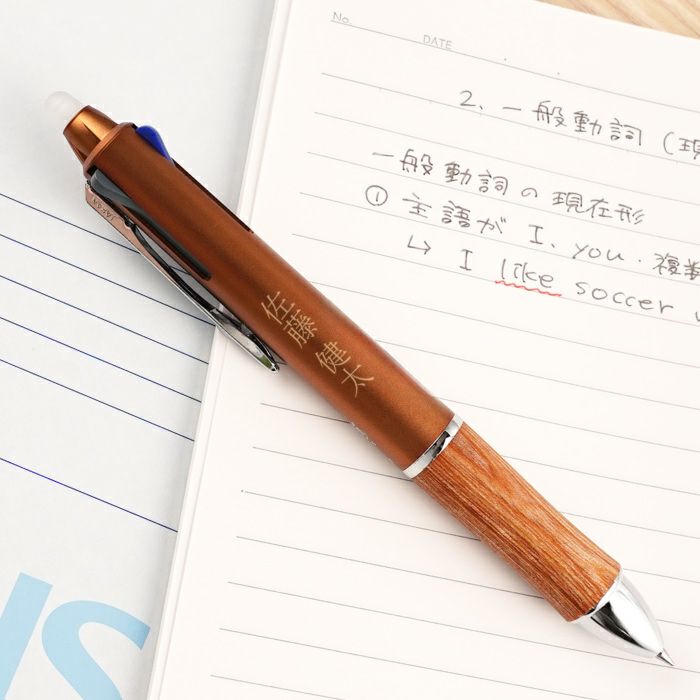 No.
DATE
2. 一般動詞 (現
一般動詞の現在形
① 主語が I、you・複数
↳ I like soccer
JAPAN
佐藤 健太
NS